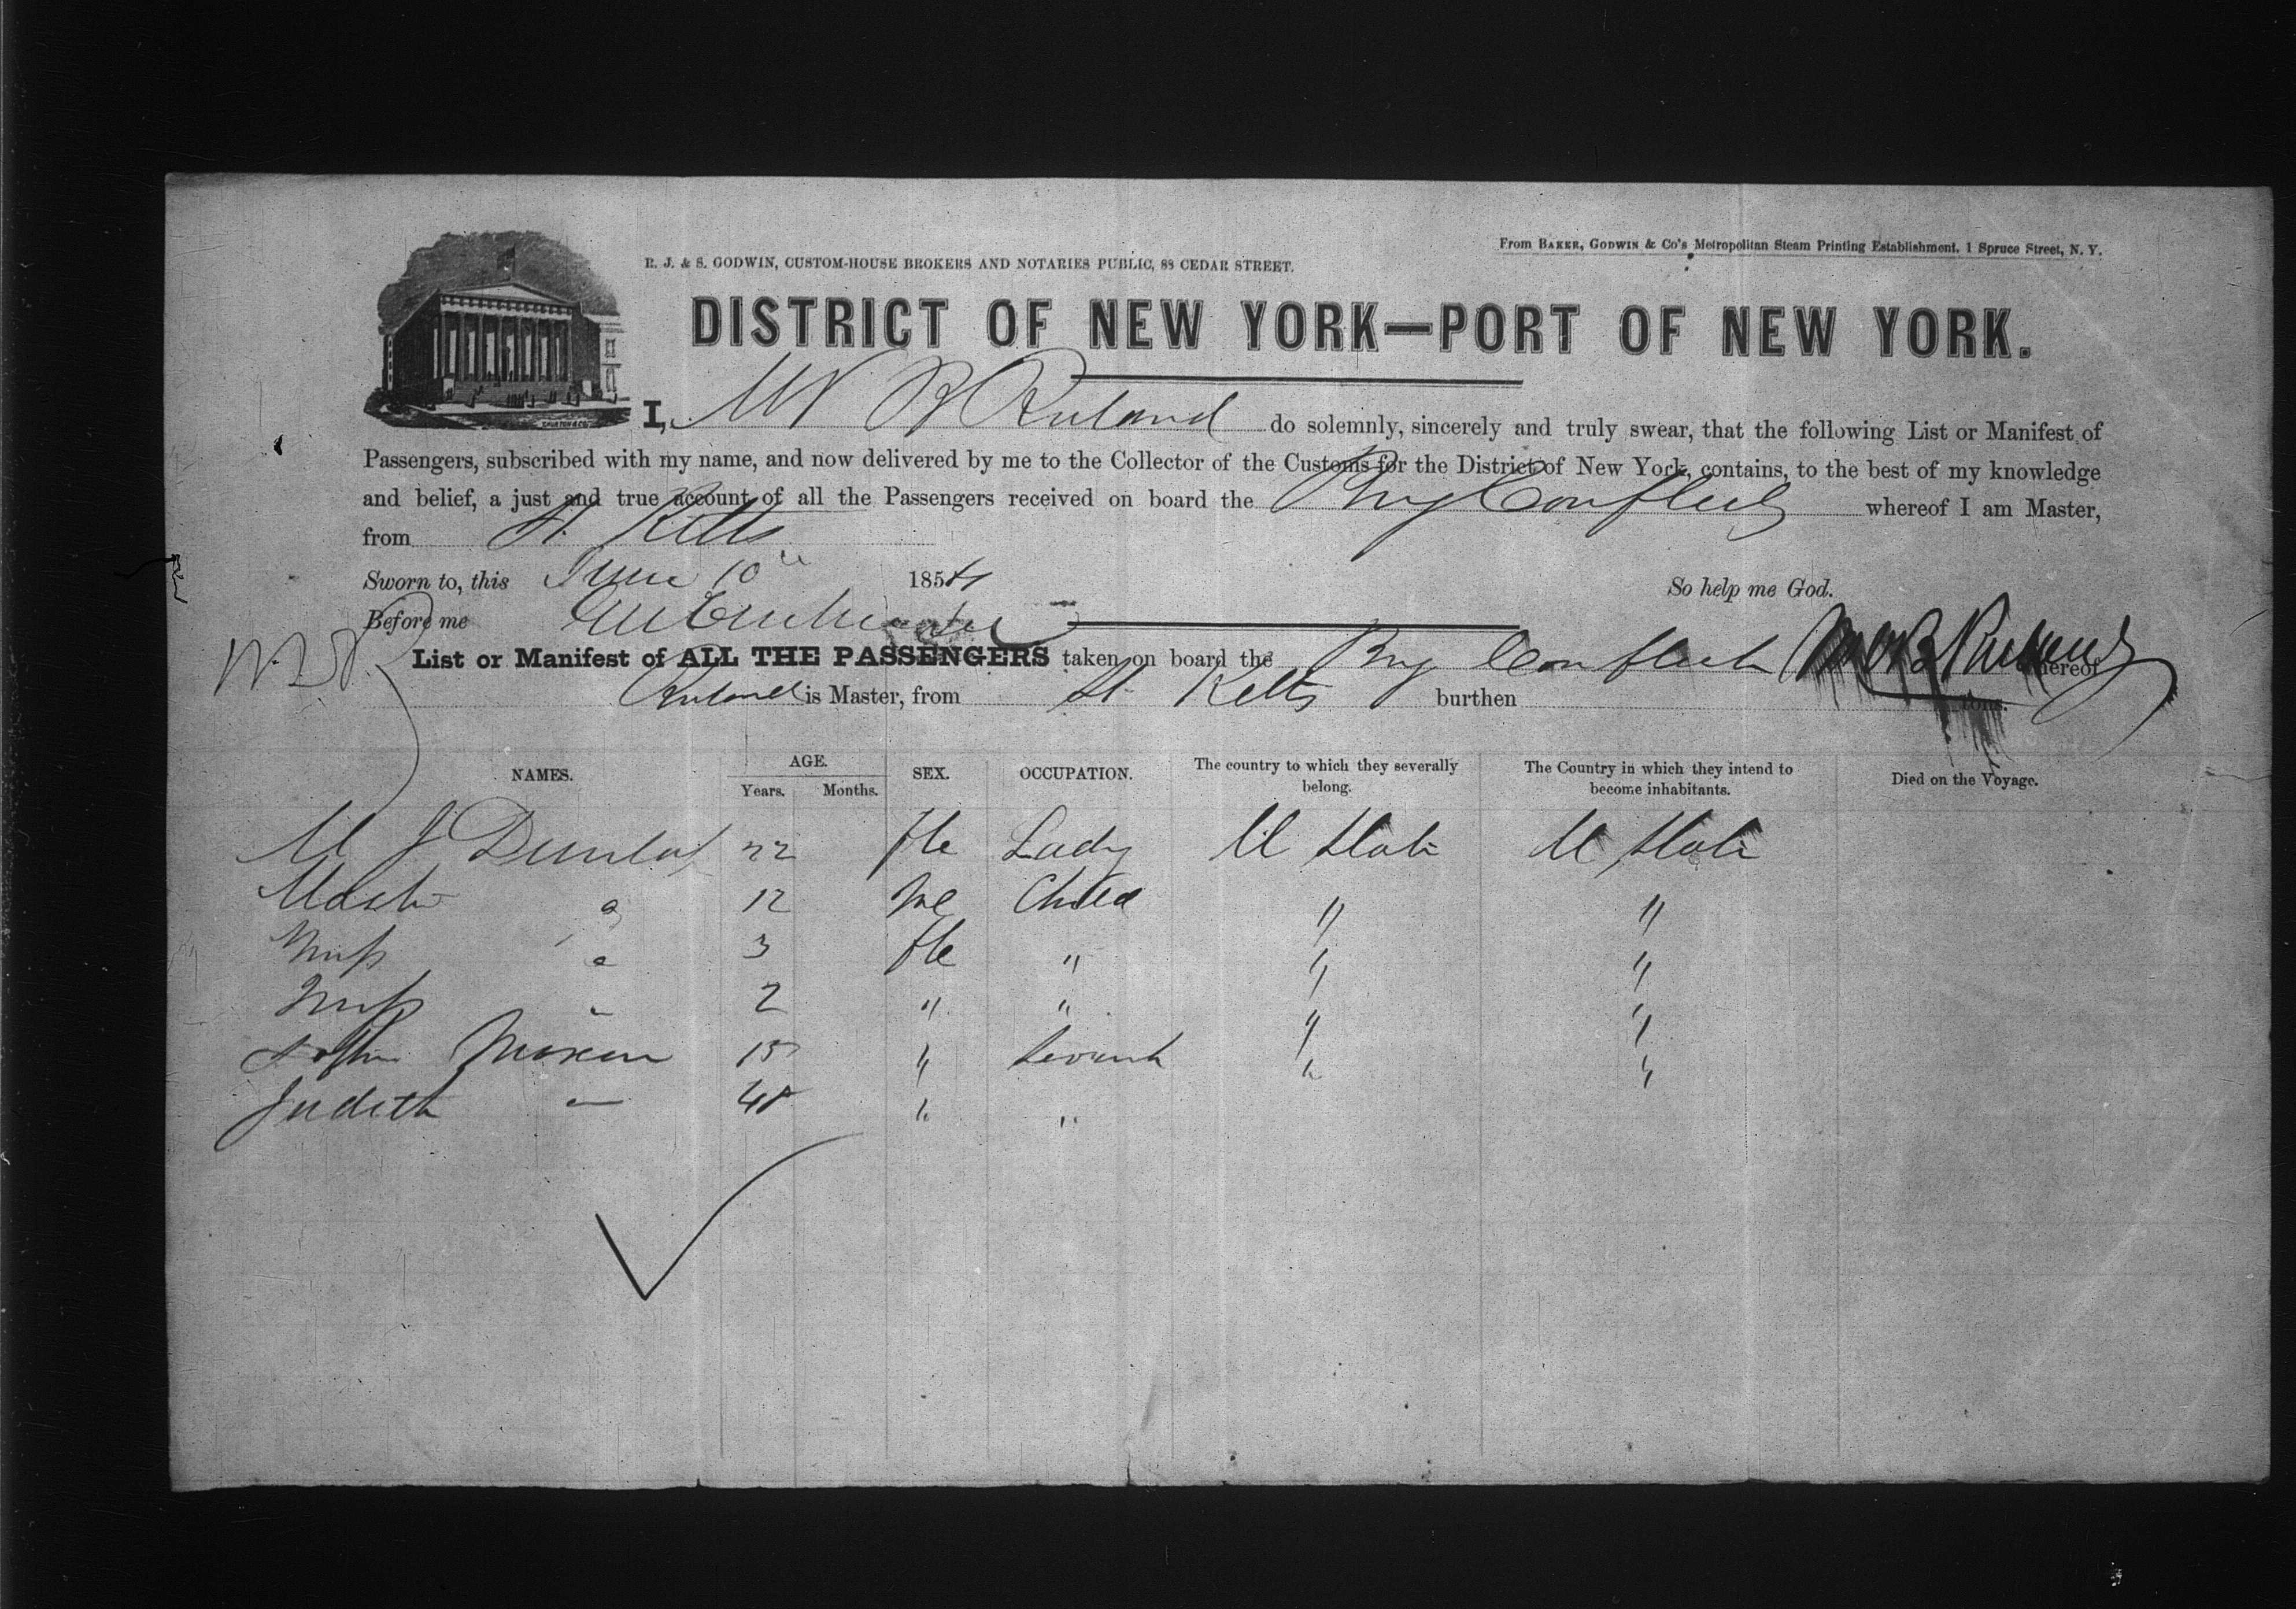 R. J. & S. GODWIN, CUSTOM-HOUSE BROKERS AND NOTARIES PUBLIC, 88 CEDAR STREET.
From BAKER, GODWIN & Co's Metropolitan Steam Printing Establishment, 1 Spruce Street, N. Y.
DISTRICT OF NEW YORK—PORT OF NEW YORK.
I, W B Ruland do solemnly, sincerely and truly swear, that the following List or Manifest of
Passengers, subscribed with my name, and now delivered by me to the Collector of the Customs for the District of New York, contains, to the best of my knowledge
and belief, a just and true account of all the Passengers received on board the Brig whereof I am Master,
from St. Kitts
Sworn to, this June 10 1854 So help me God.
Before me
List or Manifest of ALL THE PASSENGERS taken on board the Brig W B Ruland whereof
W. B. Ruland is Master, from St. Kitts burthen tons.
NAMES. AGE. Years. Months. SEX. OCCUPATION. The country to which they severally belong. The Country in which they intend to become inhabitants. Died on the Voyage.
J Dunlap 22 fle Lady U State U State
Mast " 12 me Child " "
Miss " 3 fle " " "
Miss " 2 " " " "
15 " Servant " "
Judith " " " " "